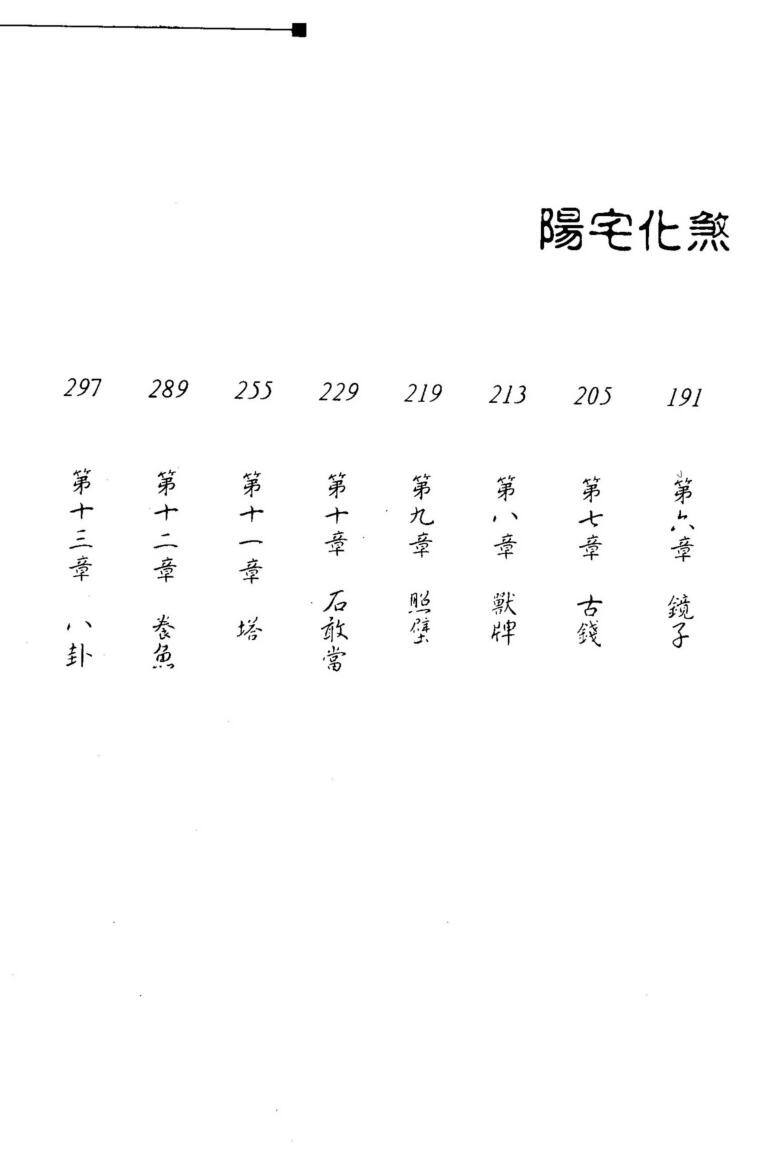 陽宅化煞
191
第六章 鏡子
205
第七章 古錢
213
第八章 獸牌
219
第九章 照壁
229
第十章 石敢當
255
第十一章 塔
289
第十二章 養魚
297
第十三章 八卦